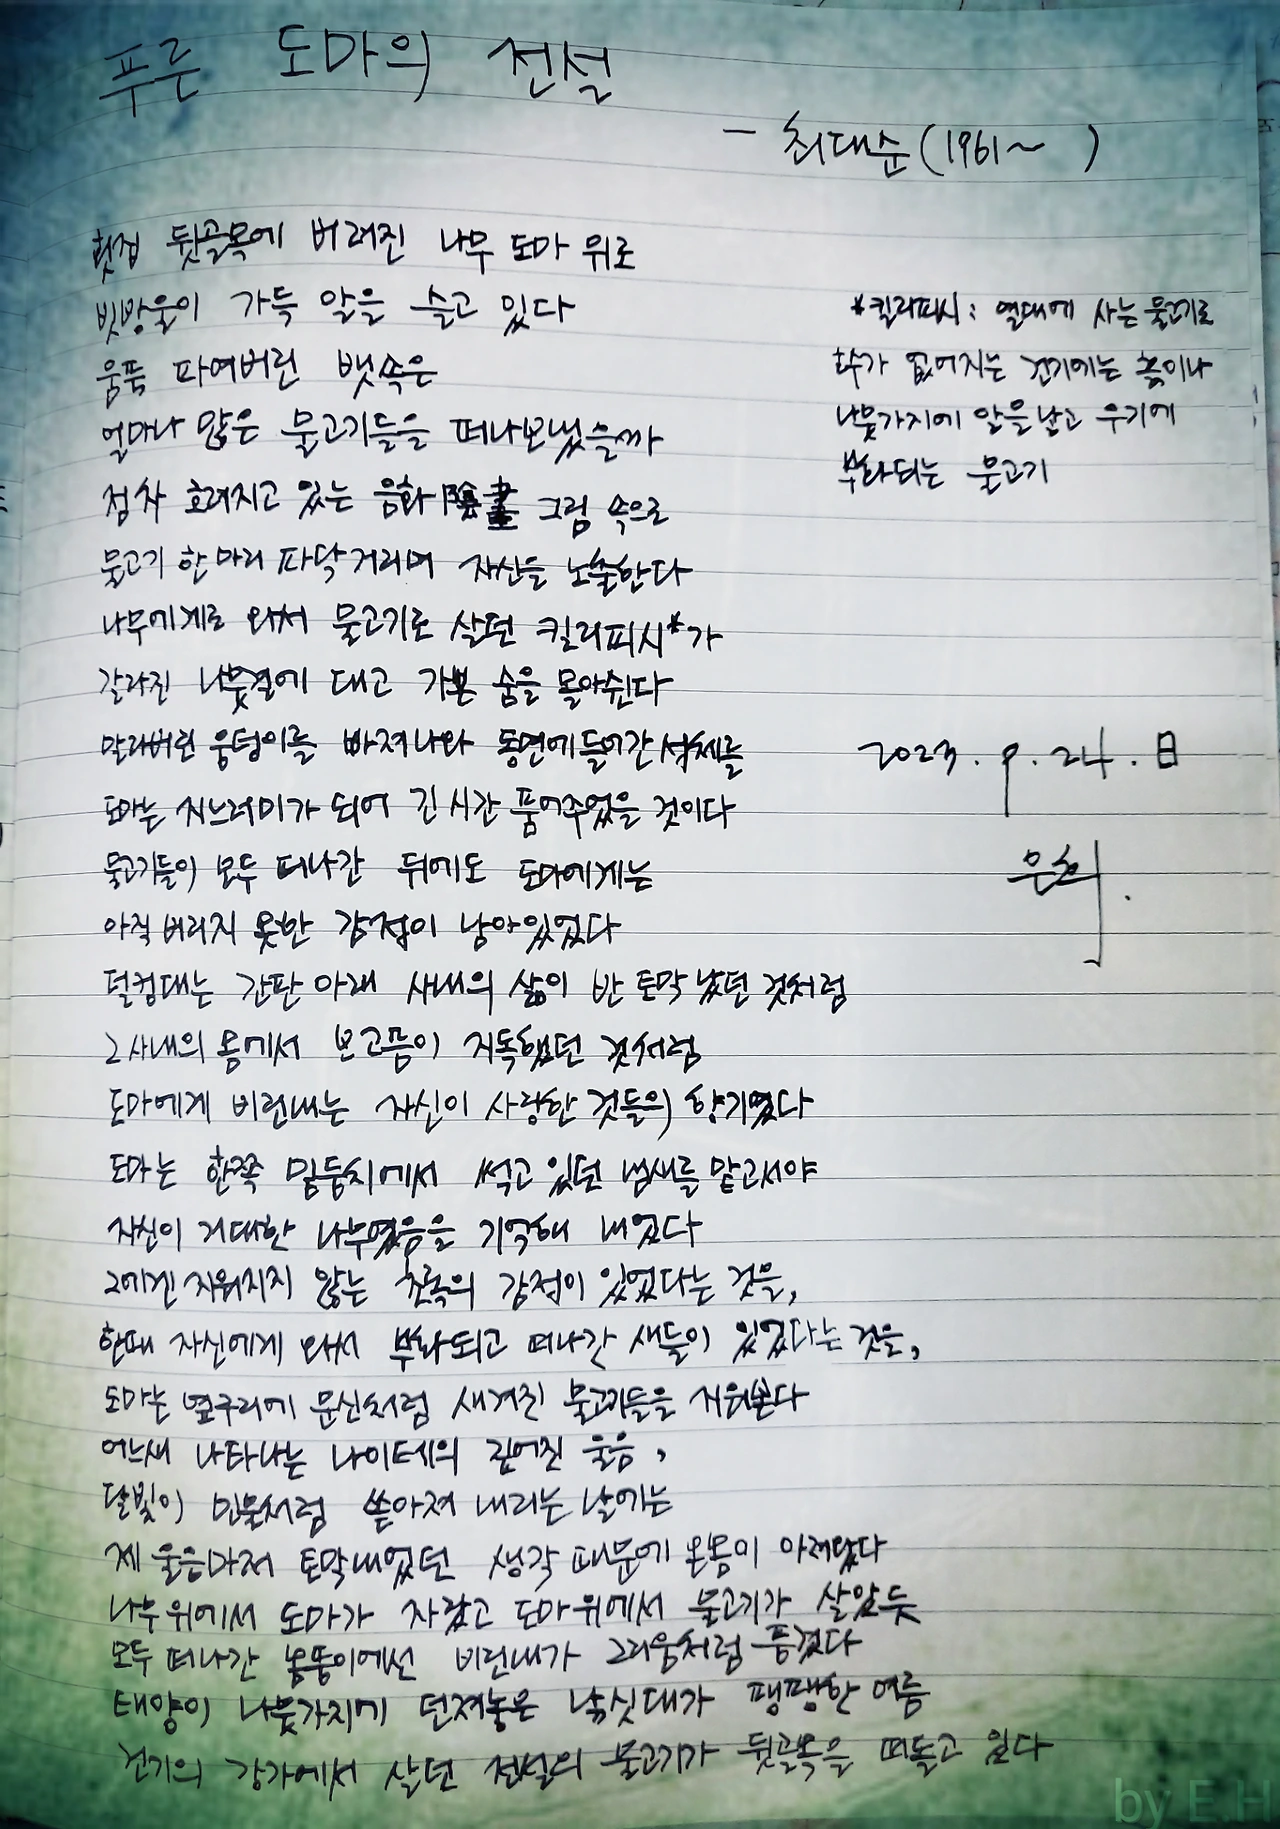 푸른 도마의 전설
- 최대순(1961~ )
횟집 뒷골목에 버려진 나무 도마 위로
빗방울이 가득 알을 슬고 있다
움푹 파여버린 뱃속은
얼마나 많은 물고기들을 떠나보냈을까
점차 흐려지고 있는 음화陰畫 그림 속으로
물고기 한마리 파닥거리며 자신을 노출한다
나무에게로 와서 물고기로 살던 킬리피시*가
갈라진 나뭇결에 대고 가쁜 숨을 몰아쉰다
말라버린 웅덩이를 빠져나와 동면에 들어간 서체를
도마는 지느러미가 되어 긴 시간 품어주었을 것이다
물고기들이 모두 떠나간 뒤에도 도마에게는
아직 버리지 못한 감정이 남아있었다
덜컹대는 간판 아래 사내의 삶이 반 토막 났던 것처럼
그 사내의 몸에서 보고픔이 지독했던 것처럼
도마에게 비린내는 자신이 사랑한 것들의 향기였다
도마는 한쪽 밑둥치에서 썩고 있던 냄새를 맡고서야
자신이 거대한 나무였음을 기억해 내었다
그에겐 지워지지 않는 초록의 감정이 있었다는 것을,
한때 자신에게 와서 부화되고 떠나간 새들이 있었다는 것을,
도마는 옆구리에 문신처럼 새겨진 물고기들을 지워본다
어느새 나타나는 나이테의 깊어진 울음,
달빛이 민물처럼 쏟아져 내리는 날에는
제 울음마저 토막내었던 생각 때문에 온몸이 아려왔다
나무 위에서 도마가 자랐고 도마 위에서 물고기가 살았듯
모두 떠나간 몸뚱이에선 비린내가 그리움처럼 풍겼다
태양이 나뭇가지에 던져놓은 낚싯대가 팽팽한 여름
건기의 강가에서 살던 전설의 물고기가 뒷골목을 떠돌고 있다
*킬리피시: 열대에 사는 물고기로
호수가 없어지는 건기에는 흙이나
나뭇가지에 알을 낳고 우기에
부화되는 물고기
2023. 9. 24. 日
은희.
by E.H